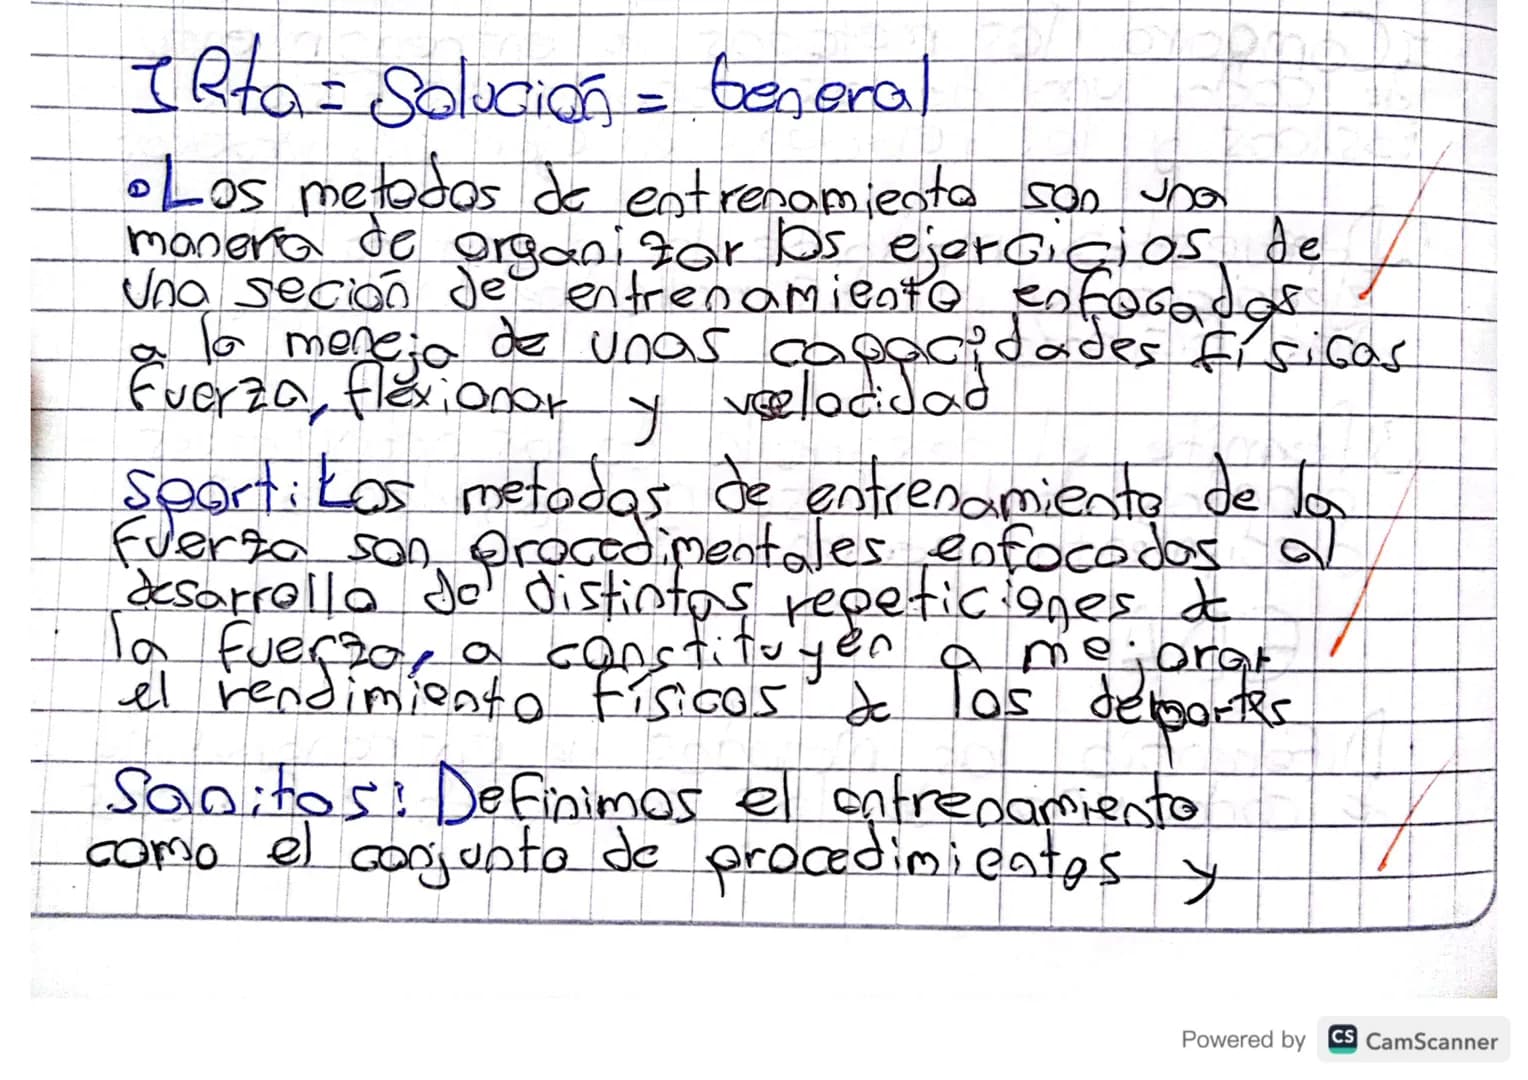 I Rta = Solución = General
• Los metodos de entrenamiento son una
manera de organizar los ejercicios de
una seción de entrenamiento enfocados
a la meneja de unas capacidades físicas
fuerza, flexionar y veelocidad
Sporti: Los metodos de entrenamiento de la
fuerza son procedimentales enfocados al
desarrollo de distintas repeticiones de
la fuerza, a constituyen a mejorar
el rendimiento físicos de los deportes
Sanitos: Definimos el entrenamiento
como el conjunto de procedimientos y
Powered by CS CamScanner